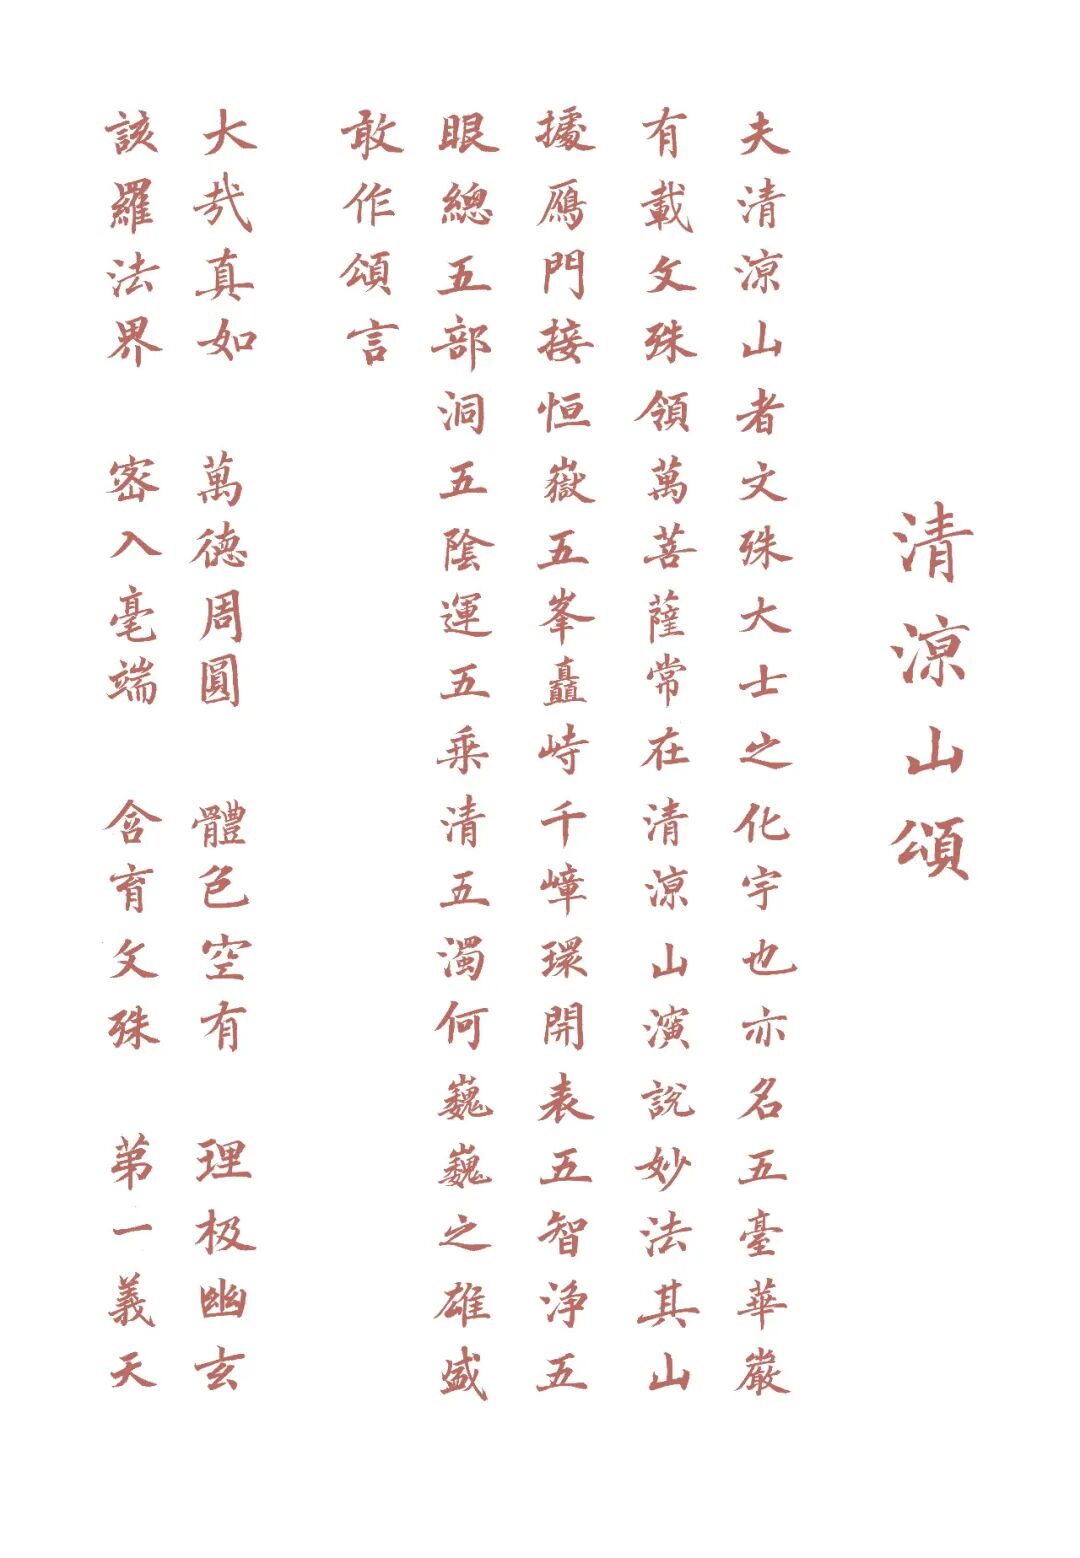 清涼山頌
夫清涼山者文殊大士之化宇也亦名五臺華嚴
有載文殊領萬菩薩常在清涼山演說妙法其山
據鴈門接恒嶽五峯矗峙千嶂環開表五智淨五
眼總五部洞五陰運五乘清五濁何巍巍之雄盛
敢作頌言
大哉真如 萬德周圓 體色空有 理极幽玄
該羅法界 密入毫端 含育文殊 第一義天